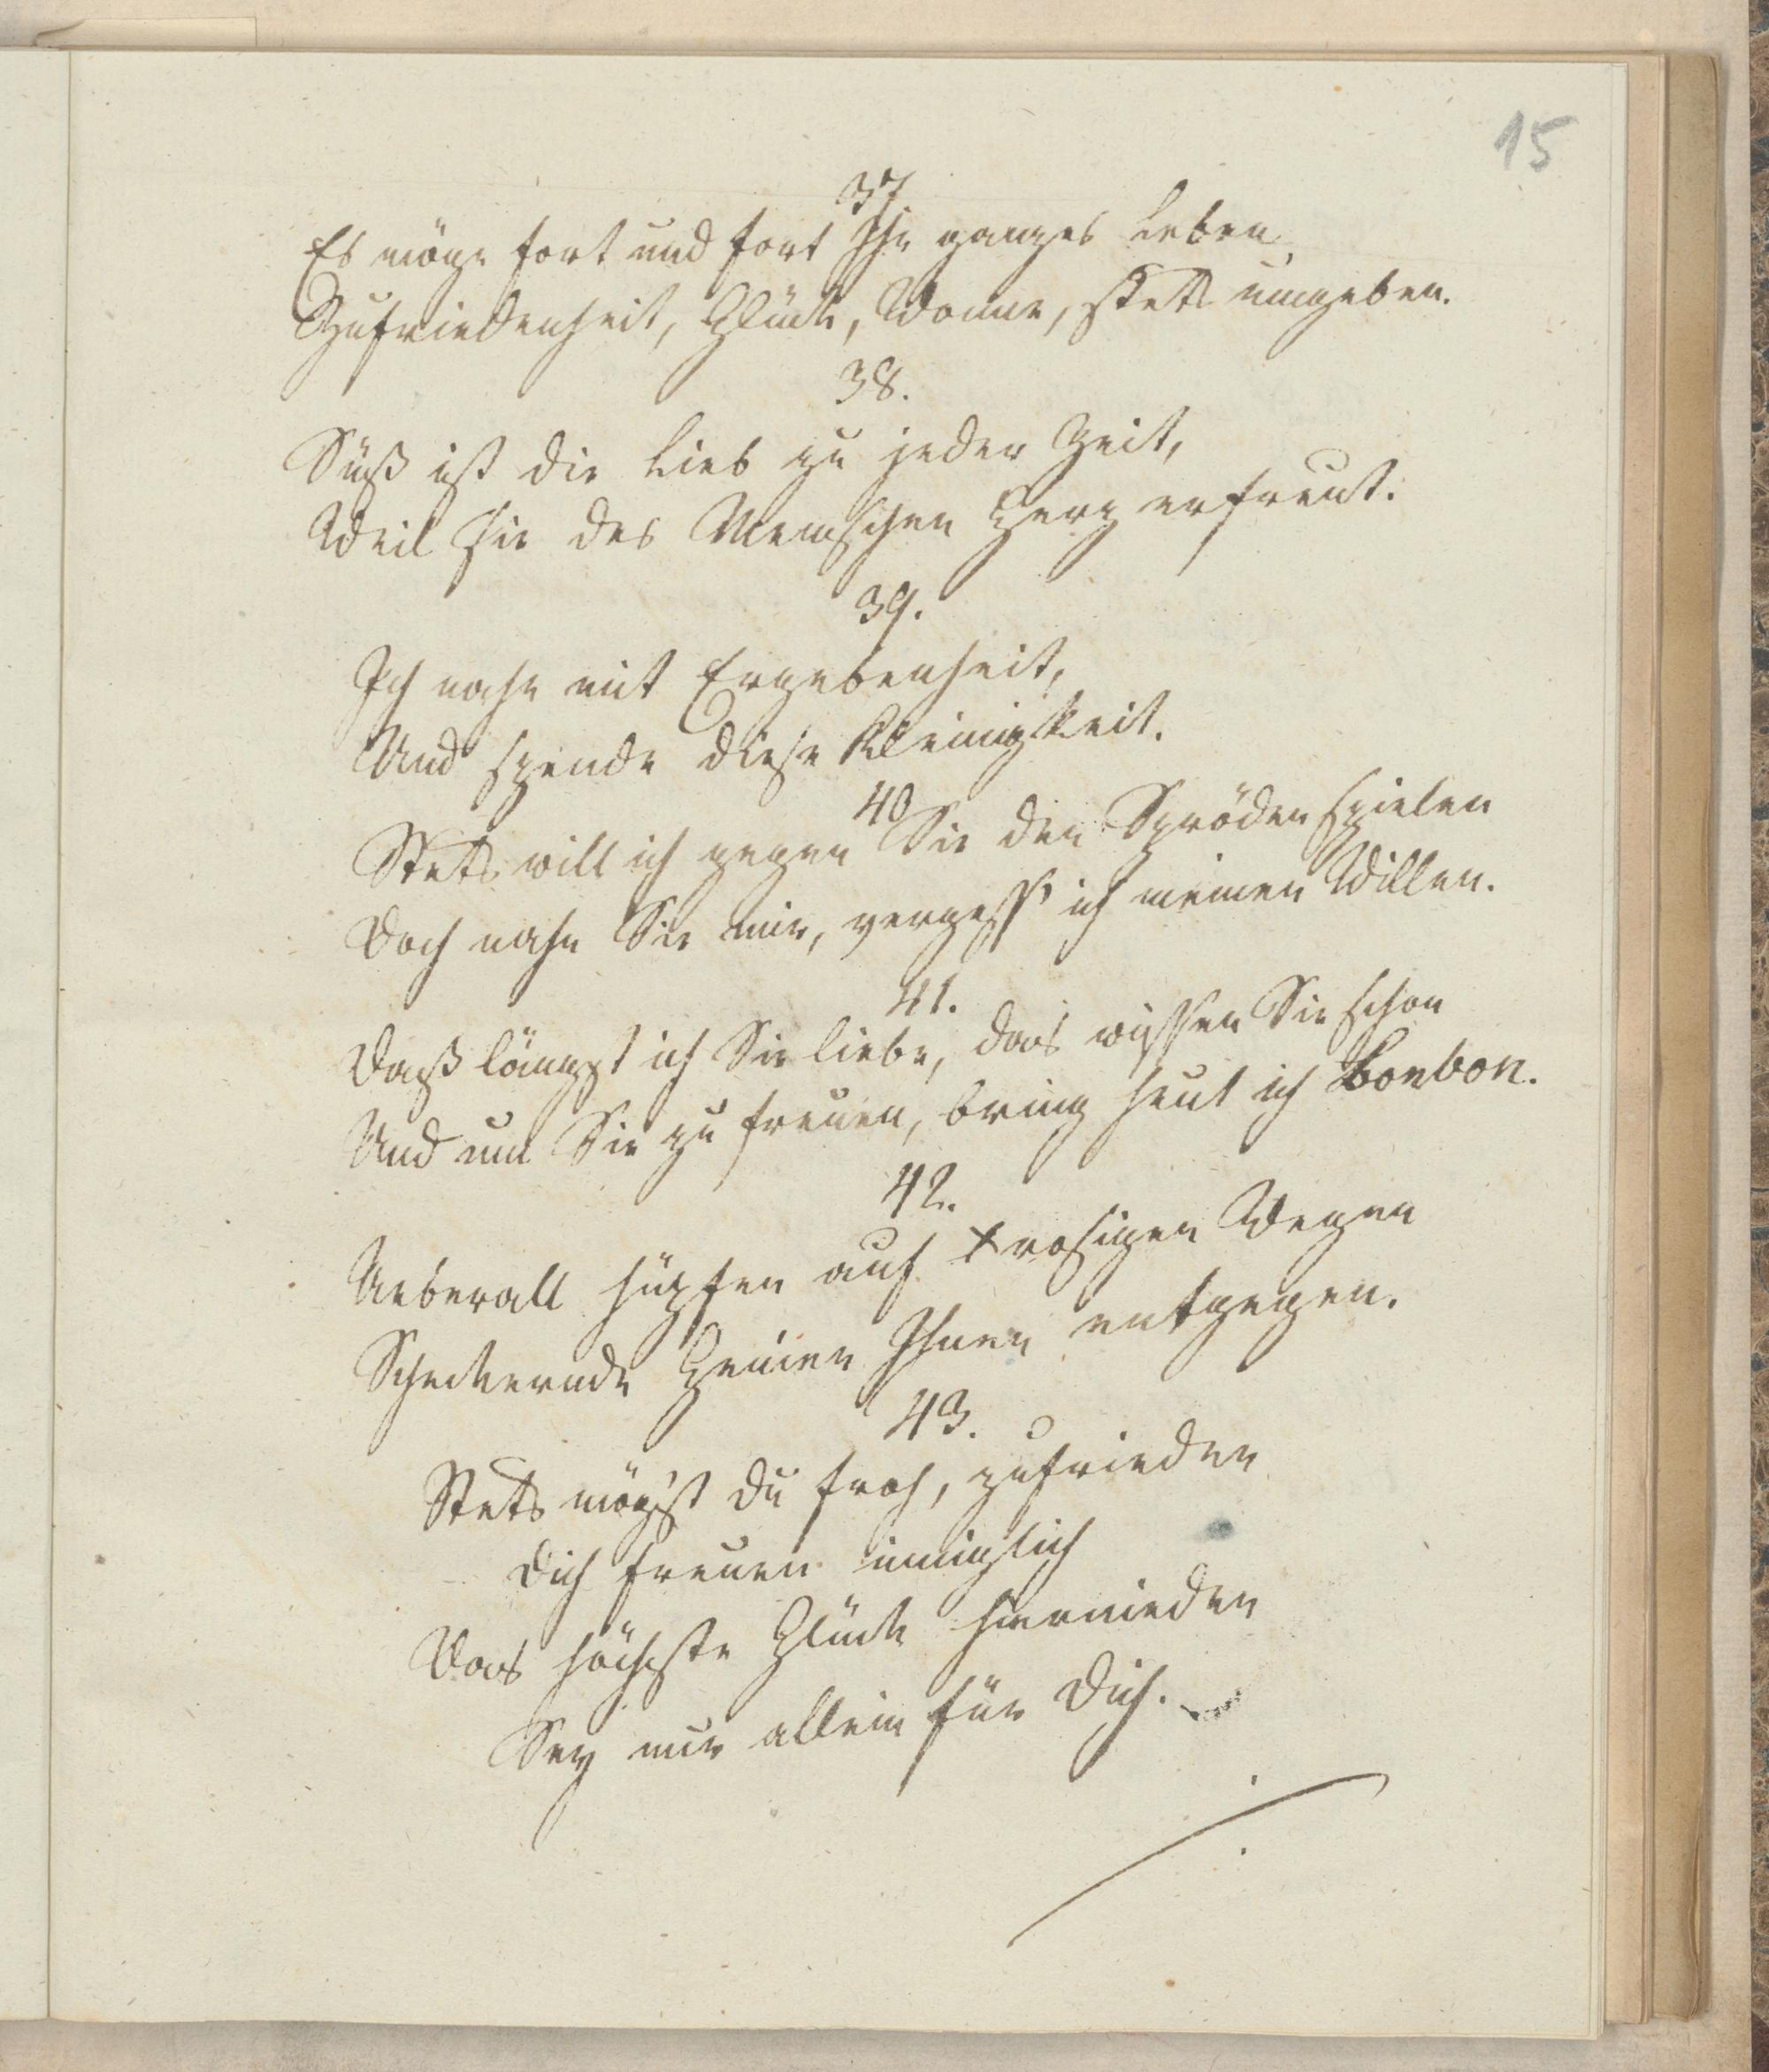 15
37
Es möge fort und fort Ihr ganzes Leben
Zufriedenheit, Glück, Wonne, stets umgeben.
38.
Süß ist die Lieb zu jeder Zeit,
Weil sie des Menschen Herz erfreut.
39.
Ich nahe mit Ergebenheit,
Und spende diese Kleinigkeit.
40
Stets will ich gegen Sie den Spröden spielen
Doch nahn Sie mir, vergeß' ich meinen Willen.
41.
Daß längst ich Sie liebe, das wissen Sie schon
Und um Sie zu freuen, bring heut ich Bonbon.
42.
Ueberall hüpfen auf rosigen Wegen
Schäckernde Genien Ihnen entgegen.
43.
Stets mög'st du froh, zufrieden
Dich freuen inniglich
Das höchste Glück hienieden
Sey nur allein für Dich.